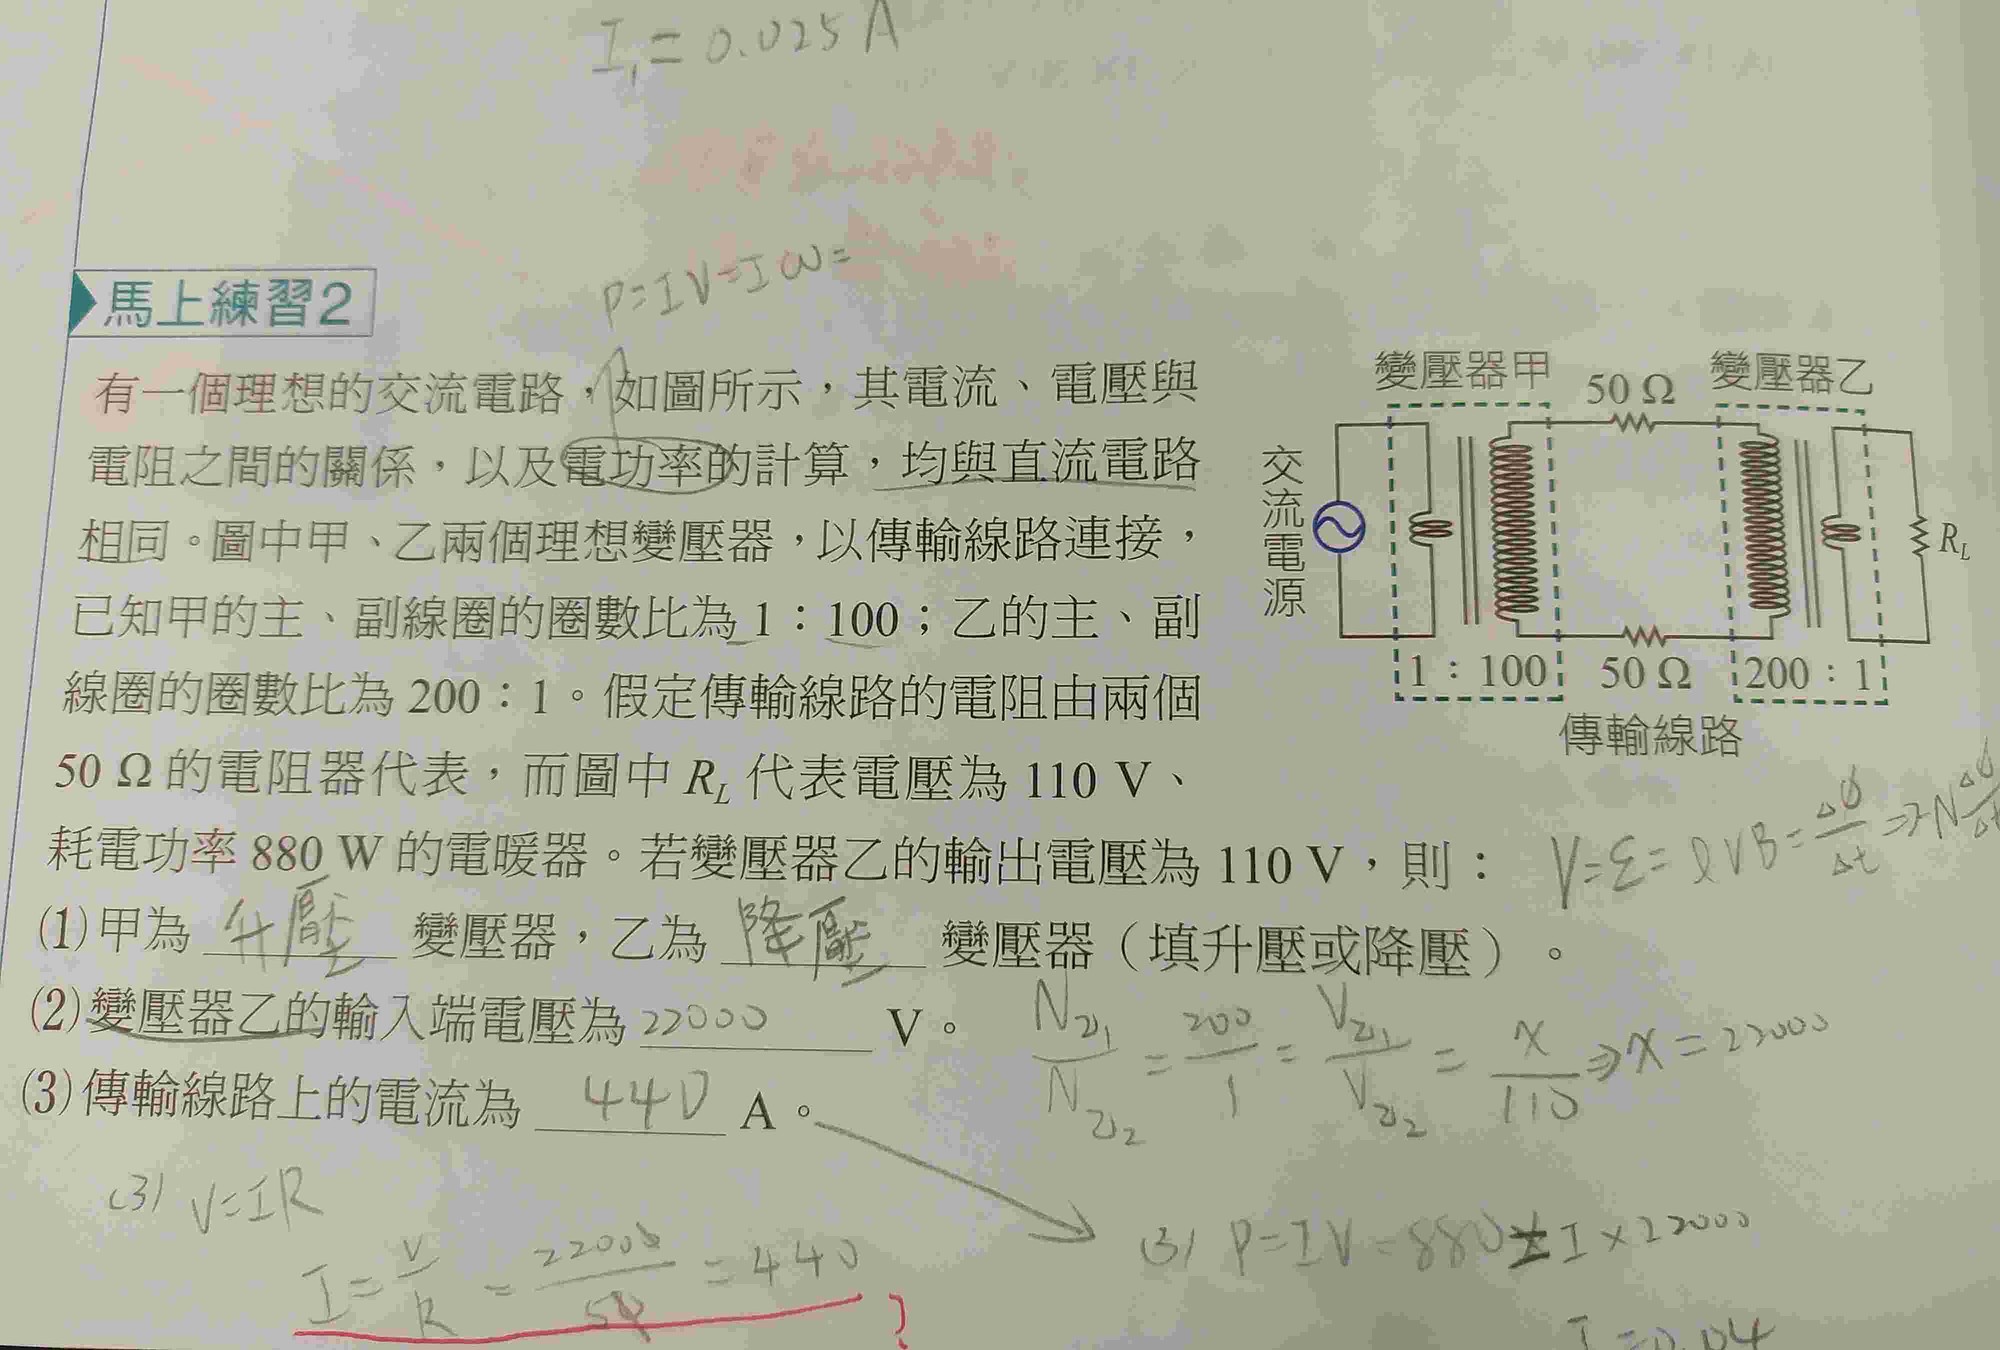 I₁ = 0.025 A
P=IV=Iω=
馬上練習2
有一個理想的交流電路，如圖所示，其電流、電壓與
電阻之間的關係，以及電功率的計算，均與直流電路
相同。圖中甲、乙兩個理想變壓器，以傳輸線路連接，
已知甲的主、副線圈的圈數比為 1：100；乙的主、副
線圈的圈數比為 200：1。假定傳輸線路的電阻由兩個
50 Ω 的電阻器代表，而圖中 R_L 代表電壓為 110 V、
耗電功率 880 W 的電暖器。若變壓器乙的輸出電壓為 110 V，則：
變壓器甲 50 Ω 變壓器乙
交流電源
R_L
1：100 50 Ω 200：1
傳輸線路
V=ε=lVB=Δϕ/Δt=>N Δϕ/Δt
(1)甲為 升壓 變壓器，乙為 降壓 變壓器（填升壓或降壓）。
(2)變壓器乙的輸入端電壓為 22000 V。
N乙1/N乙2 = 200/1 = V乙1/V乙2 = x/110 ⇒ x = 22000
(3)傳輸線路上的電流為 440 A。
(3) V=IR
I = V/R = 22000/50 = 440 ?
(3) P=IV=880=I×22000
I=0.04